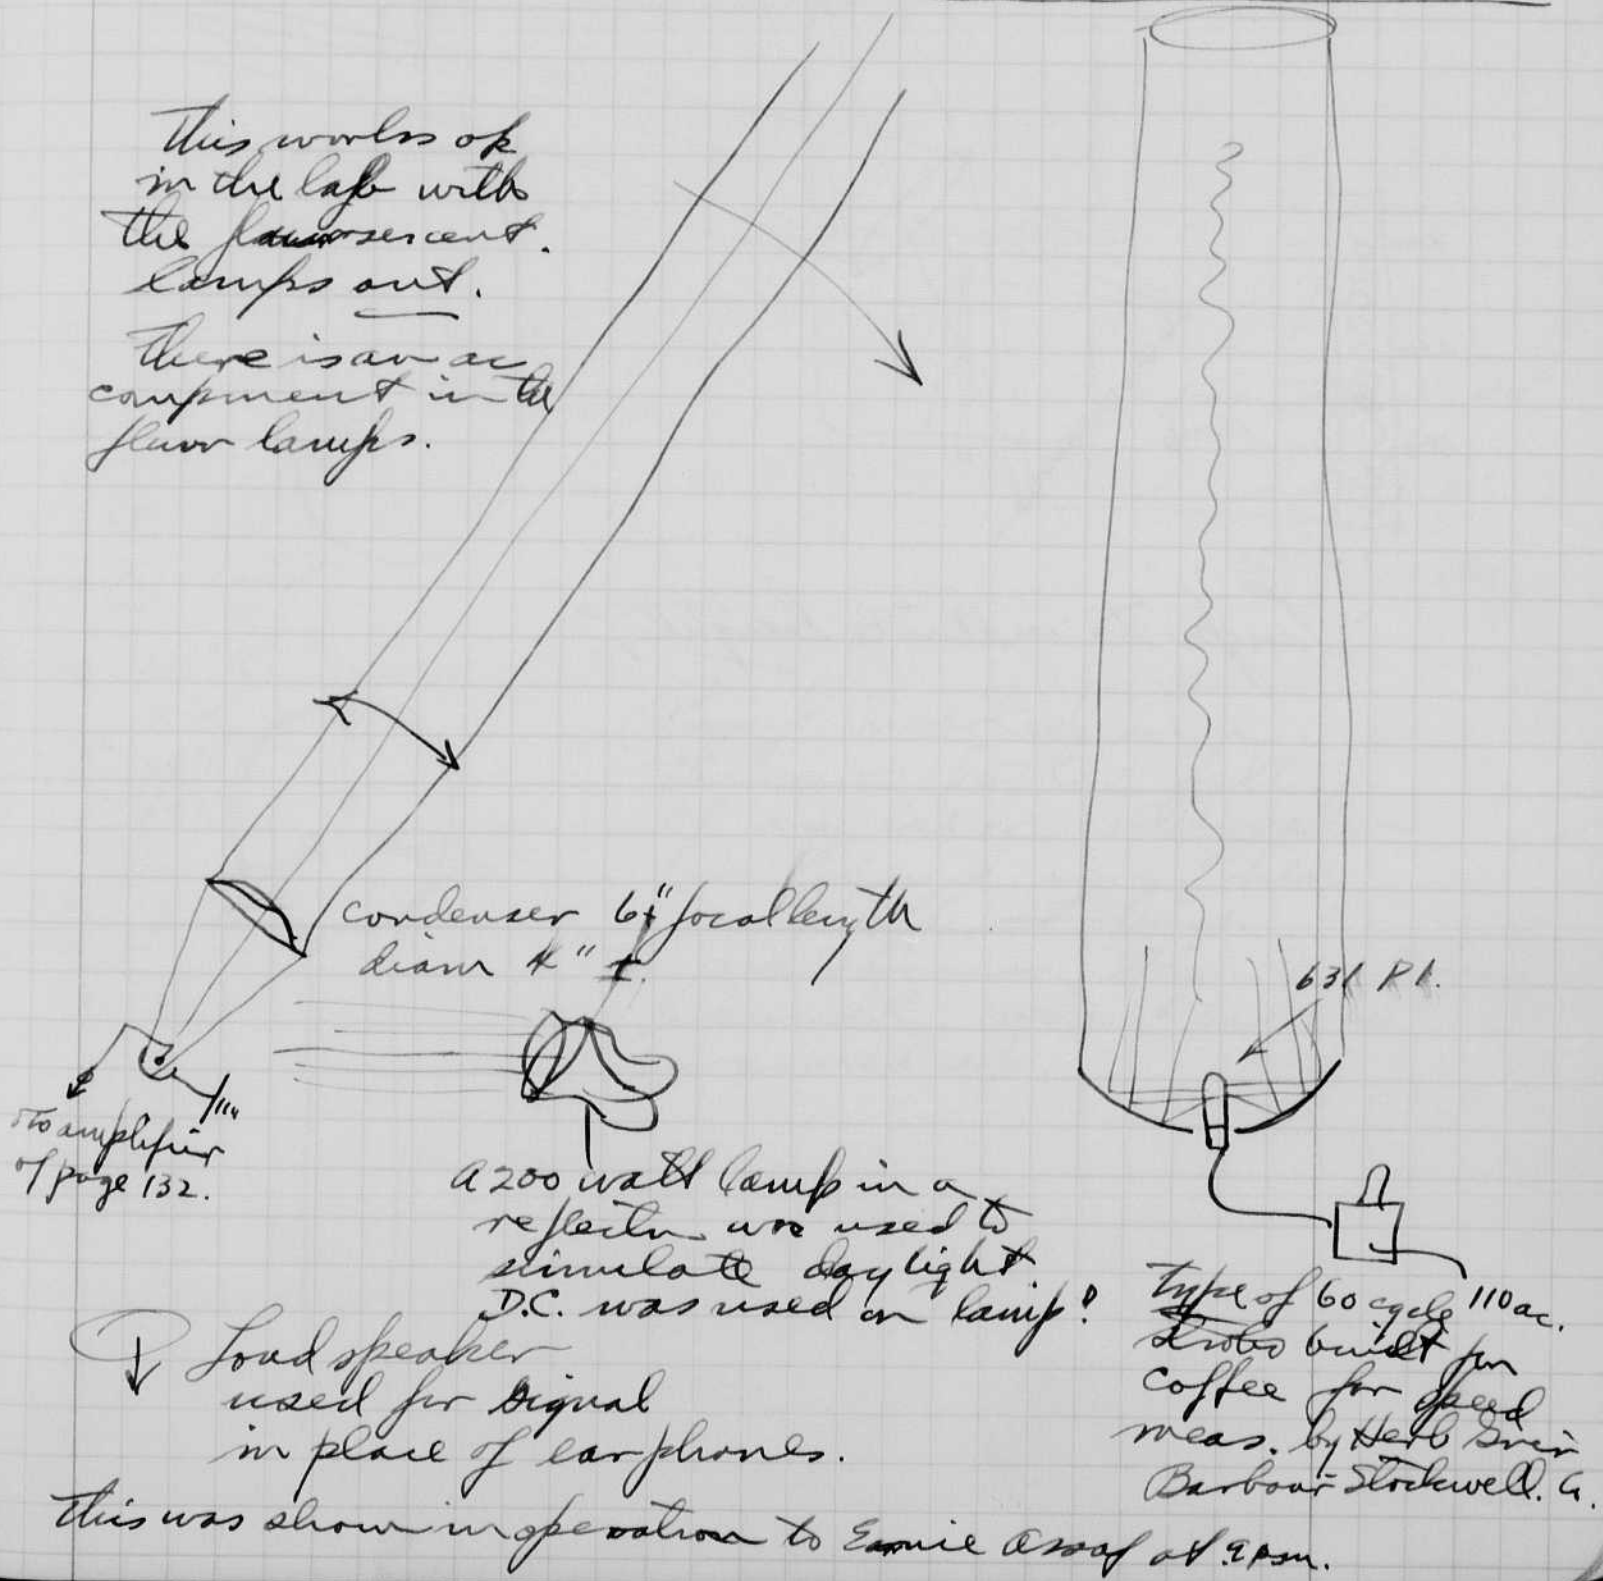 This works ok
in the lab with
the flourescent
lamps out.
There is an ac
component in the
fluor lamps.
condenser 6± " focal length
diam 4" ±.
631 P1.
to amplifier
of page 132.
A 200 watt lamp in a
reflector was used to
simulate daylight.
D.C. was used on lamp!
110 ac.
type of 60 cycle
strobo built for
coffee for speed
meas. by Herb
Barbour Stockwell. Co.
Loud speaker
used for signal
in place of earphones.
This was shown in operation to Ernie at 9 pm.